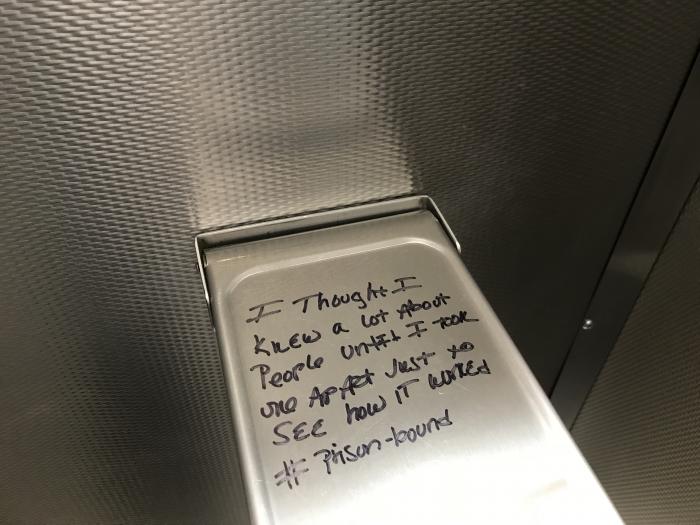 I Thought I
KNEW a Lot About
People until I took
one Apart Just to
SEE how IT worked
# Prison-bound